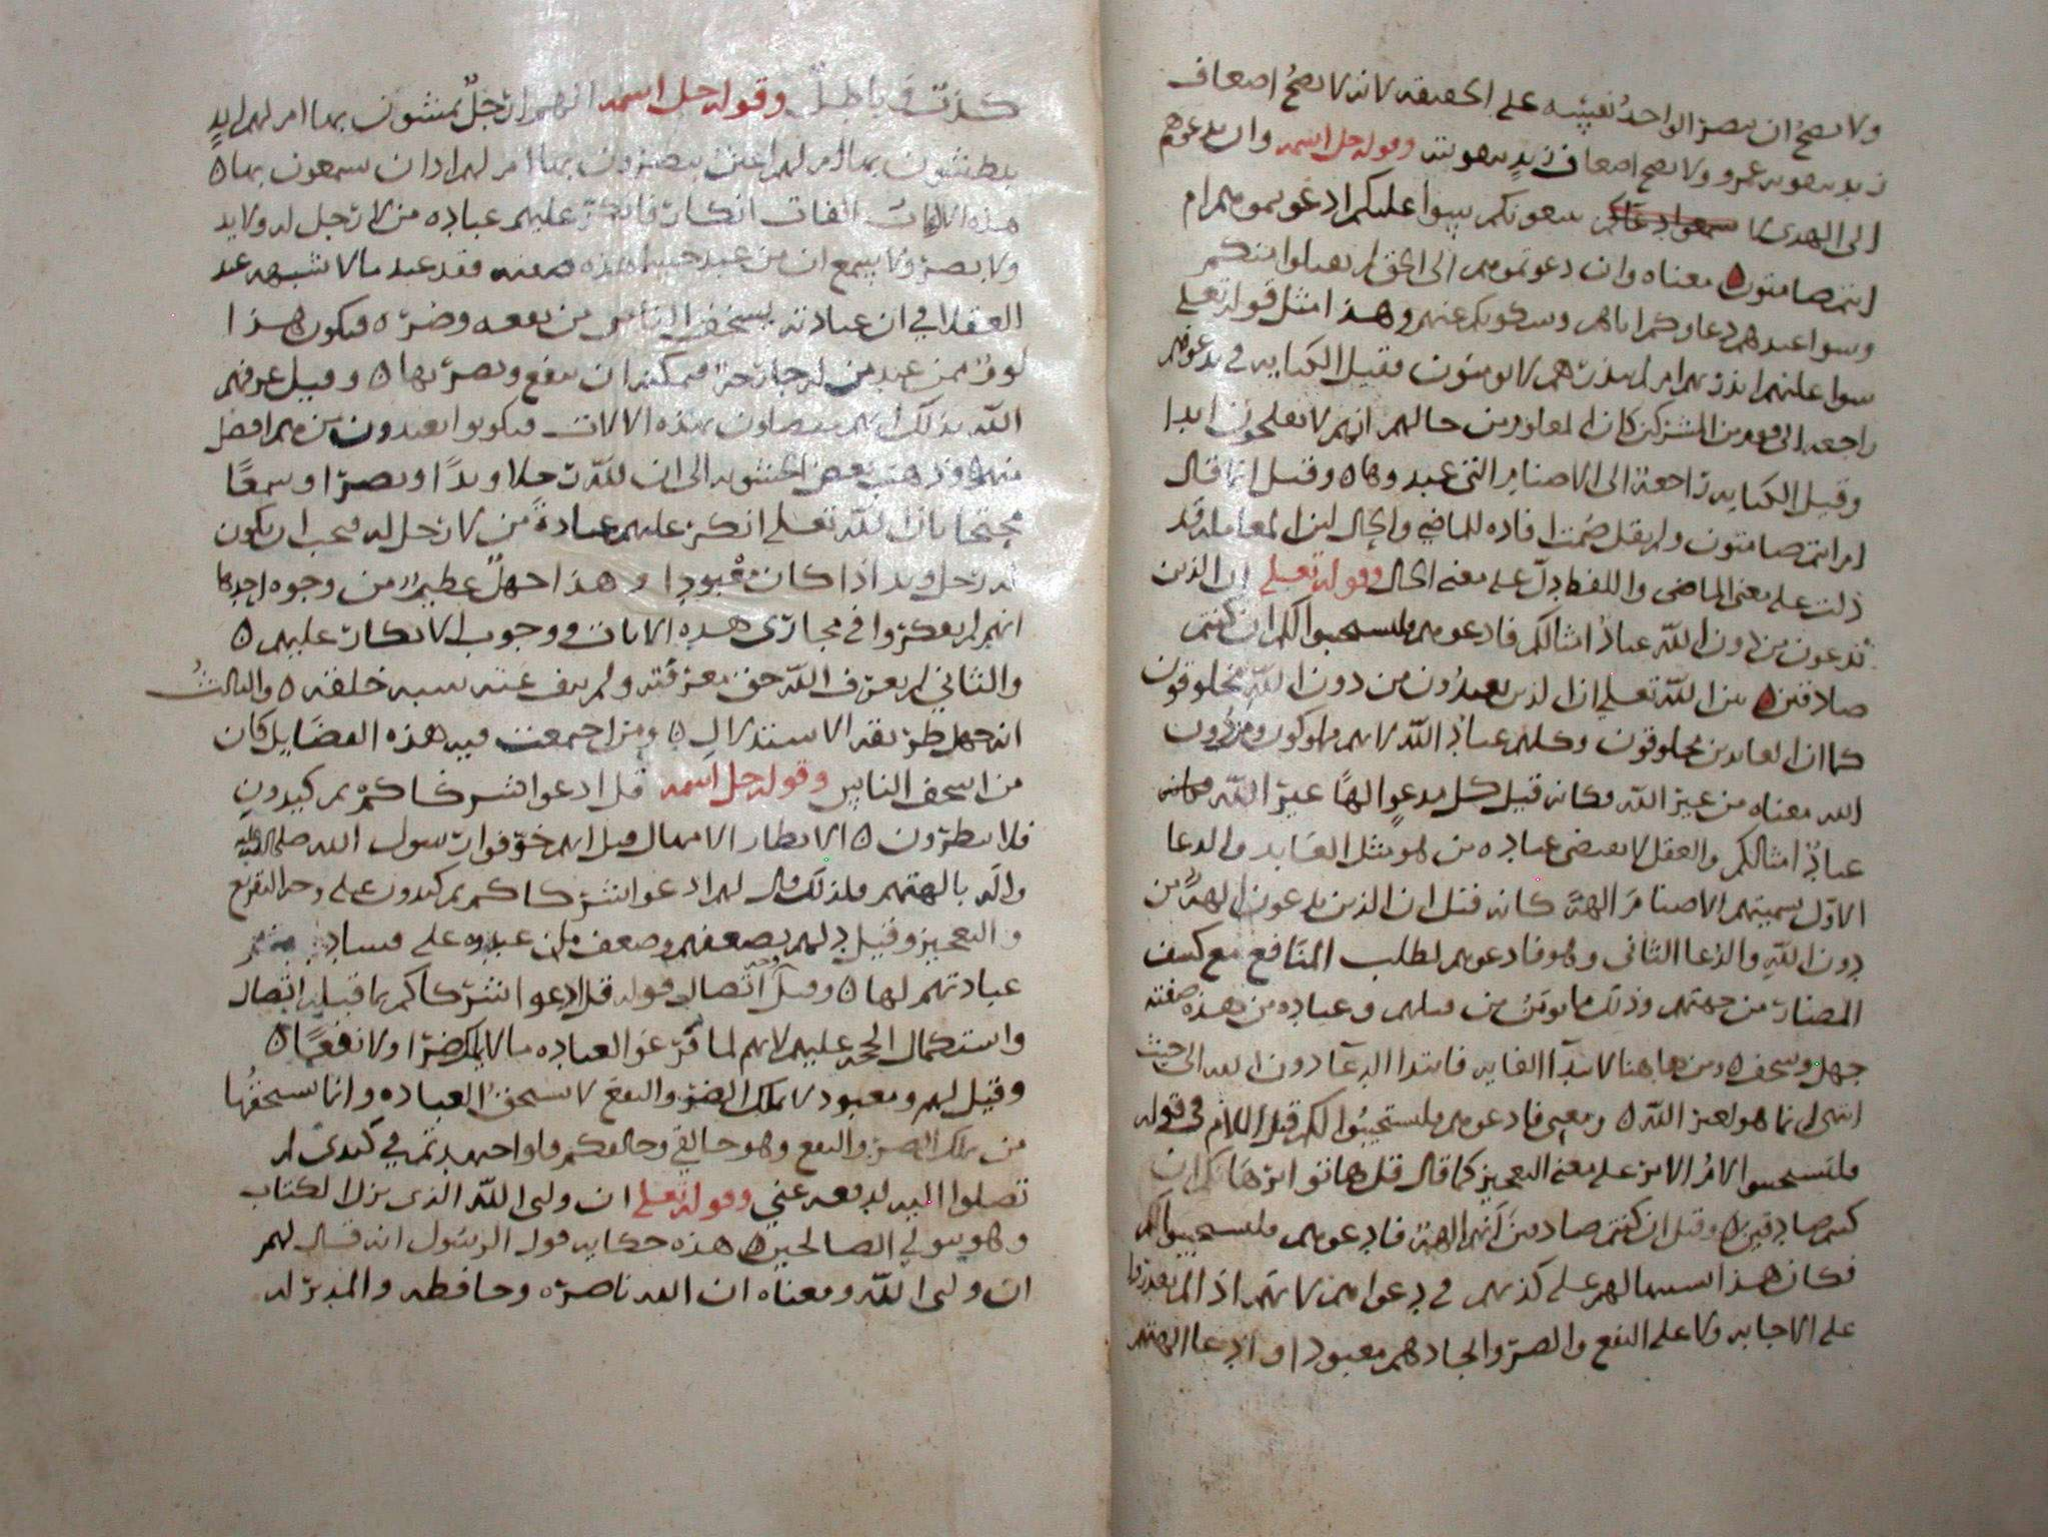 ولا يصح ان ينصر الواحد نفسه على الحقيقه لانه لا يصح اضعاف
زيد بنفويه عمرو ولا يصح اضعاف زيد بنفويته وقوله جل اسمه وان تدعوهم
الى الهدى لا يتبعوكم سوا عليكم ادعوتموهم ام
انتم صامتون ه معناه وان دعوتموهم الى الحق لم يقبلوا منكم
وسوا عندهم دعاوكم اياهم وسكوتكم عنهم وهذا مثل قوله تعلى
سوا عليهم انذرتهم ام لم تنذرهم لا يومنون فقيل الكنايه في تدعوهم
راجعه الى قوم من المشركين كان المعلوم من حالهم انهم لا يفلحون ابدا
وقيل الكنايه راجعة الى الاصنام التي عبدوها ه وقيل انما قال
ام انتم صامتون ولم يقل صمتم افاده للماضي والحال لان المعامله قد
دلت على معنى الماضي واللفظ يدل على معنى الحال وقوله تعلى ان الذين
تدعون من دون الله عباد امثالكم فادعوهم فليستجيبوا لكم ان كنتم
صادقين ه بين الله تعلى ان الذين يعبدون من دون الله مخلوقون
كما ان العابدين مخلوقون وكلهم عباد الله لانهم مملوكون ومن دون
الله معناه من غير الله فكانه قيل كل مدعو الهًا غير الله
عباد امثالكم والعقل لا يقتضي عباده من هو مثل العابد والدعا
الاول تسميتهم الاصنام الهة كانه قيل ان الذين تدعون الهة من
دون الله والدعا الثاني وهو فادعوهم لطلب المنافع مع كشف
المضار من جهتهم وذلك مايوس من قبلهم وعباده من هذه صفته
جهل وسخف ه ومن هاهنا لابتدا الغايه فابتدا الدعا دون الله الى حيث
انتهى انما هو لغير الله ه ومعنى فادعوهم فليستجيبوا لكم قيل اللام في قوله
فليستجيبوا لام الامر على معنى التعجيز كما قال قل هاتوا برهانكم ان
كنتم صادقين ه وقيل ان كنتم صادقين انهم الهة فادعوهم فليستجيبوا لكم
فكان هذا تنبيها لهم على كذبهم في دعواهم لانهم اذا لم يقدروا
على الاجابه ولا على النفع والضر واتخاذهم معبودا وادعا الهيته
كذب وباطل وقوله جل اسمه الهم ارجل يمشون بها ام لهم ايد
يبطشون بها ام لهم اعين يبصرون بها ام لهم اذان يسمعون بها ه
هذه الالفات الفات انكار فانكر عليهم عباده من لا رجل له ولا يد
ولا بصر ولا سمع ان من عبد هذه صفته فقد عبد ما لا شبهه عند
العقلا في ان عبادته لا يستحق من نفعه وضره فيكون هذا
لوم ممن عبد من له جارحة فيمكنه ان ينفع ويضر بها ه وقيل عرفهم
الله بذلك انهم مفضلون بهذه الالات فيكونوا يعبدون من هم افضل
منهم ه وذهب بعض الحشويه الى ان لله رجلا ويدًا وبصرا وسمعًا
محتجا بان الله تعلى انكر عليهم عبادة من لا رجل له فيجب ان يكون
له رجل ويد اذا كان معبودا وهذا جهل عظيم من وجوه احدها
انهم لم يفكروا في مجاري هذه الايات ووجوب الانكار عليهم ه
والثاني لم يعرف الله حق معرفته ولم ينف عنه شبه خلقه ه والثالث
انه جهل طريقة الاستدلال ه ومن اجتمعت فيه هذه الفضايل كان
من اسخف الناس وقوله جل اسمه قل ادعوا شركاكم ثم كيدون
فلا تنظرون ه الانظار الامهال وقيل انهم خوفوا رسول الله صلى الله عليه
واله بالهتهم فلذلك قال لهم ادعوا شركاكم ثم كيدون على وجه التقريع
والتعجيز وقيل دلهم بضعفهم وضعف من عبدوه على فساد
عبادتهم لها ه وقيل وجه اتصال قوله قل ادعوا شركاكم بما قبله اتصال
واستكمال الحجه عليهم لانهم لما قرعوا لعباده ما لا يملك ضرا ولا نفعًا ه
وقيل لهم ومعبود لا يملك الضر والنفع لا يستحق العباده وانما يستحقها
من يملك الضر والنفع وهو خالقي وخالقكم فلو اجتهدتم في كيدي لم
تصلوا اليه لدفعه عني وقوله تعلى ان وليي الله الذي نزل الكتاب
وهو يتولى الصالحين ه هذه حكايه قول الرسول انه قال لهم
ان وليي الله ومعناه ان الله ناصره وحافظه والمدبر له